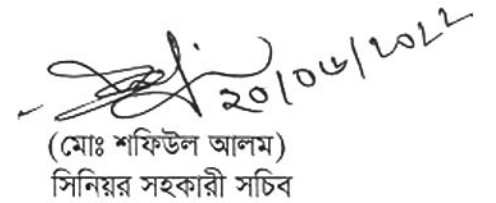 ২০/০৬/২০২২
(মোঃ শফিউল আলম)
সিনিয়র সহকারী সচিব